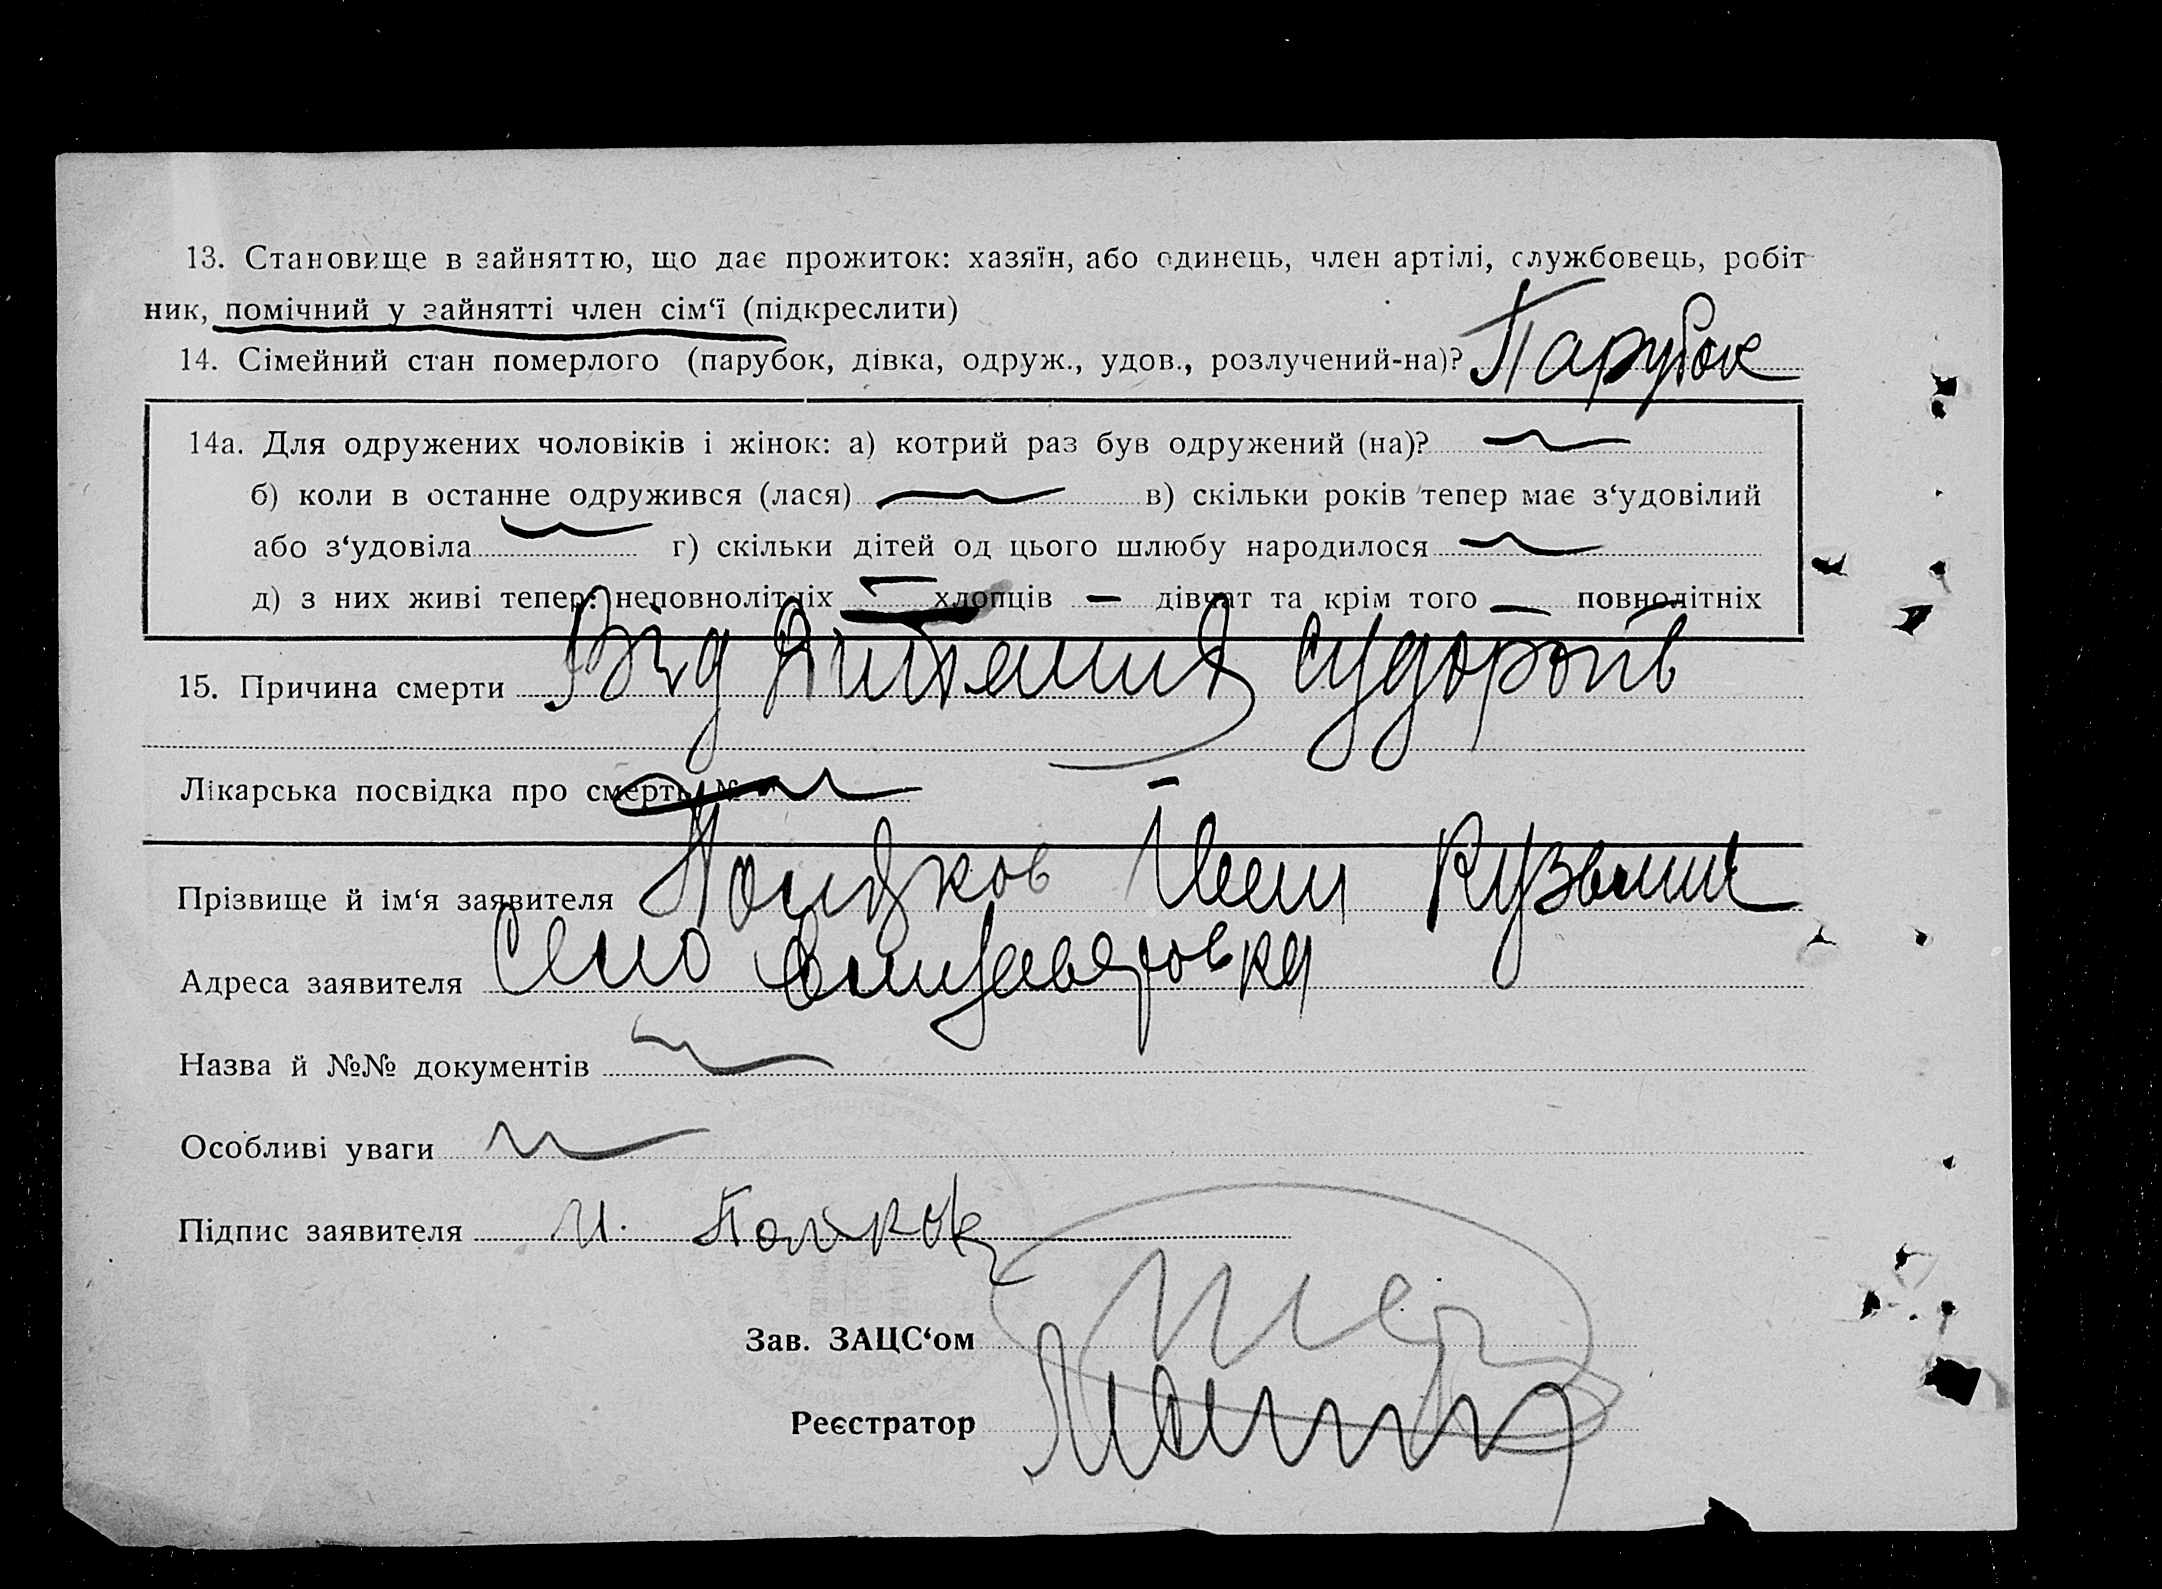 13. Становище в зайняттю, що дає прожиток: хазяїн, або одинець, член артілі, службовець, робіт-
ник, помічний у зайнятті член сім‘ї (підкреслити)
14. Сімейний стан померлого (парубок, дівка, одруж., удов., розлучений-на)? Парубок
14а. Для одружених чоловіків і жінок: а) котрий раз був одружений (на)?
б) коли в останне одружився (лася) в) скільки років тепер має з‘удовілий
або з‘удовіла г) скільки дітей од цього шлюбу народилося
д) з них живі тепер: неповнолітніх — хлопців — дівчат та крім того — повнолітніх
15. Причина смерти Від Дитячих судорогів
Лікарська посвідка про смерть №
Прізвище й ім‘я заявителя Кузьмич
Адреса заявителя Село Єлизаветовка
Назва й №№ документів
Особливі уваги
Підпис заявителя И.
Зав. ЗАЦС‘ом
Реєстратор